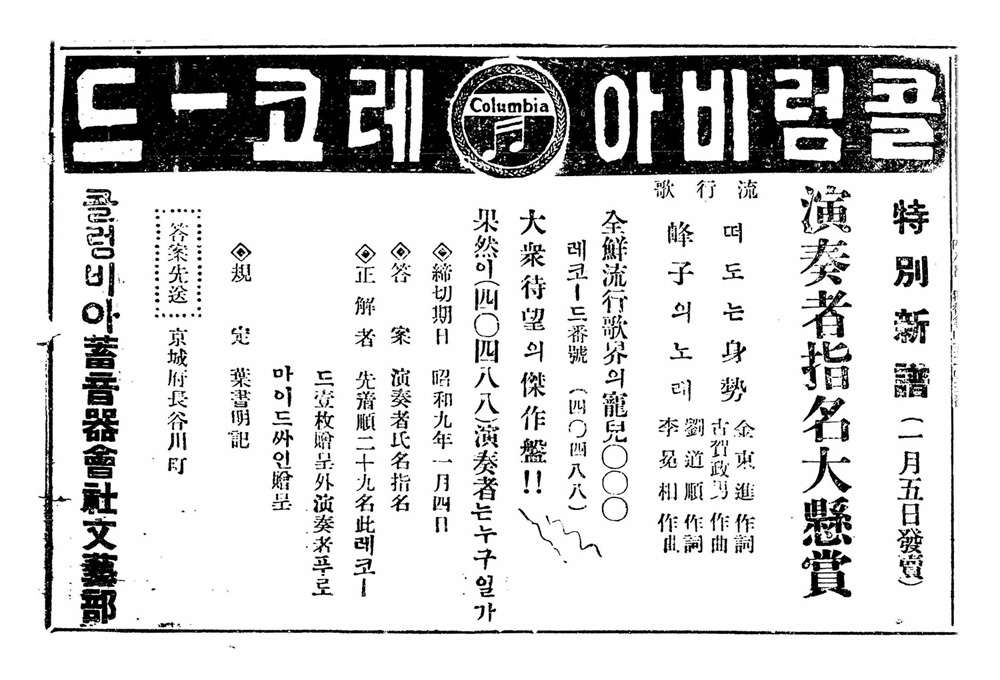 콜럼비아 레코ー드
Columbia
特別新譜 (一月五日發賣)
演奏者指名大懸賞
流行歌
떠도는身勢 金東進 作詞
古賀政男 作曲
峰子의노래 劉道順 作詞
李冕相 作曲
全鮮流行歌界의寵兒〇〇〇
레코ー드番號 (四〇四八八)
大衆待望의傑作盤!!
果然이(四〇四八八)演奏者는누구일가
◈締切期日 昭和九年一月四日
◈答案 演奏者氏名指名
◈正解者 先着順二十九名此레코ー
드壹枚贈呈外演奏者푸로
마이드싸인贈呈
◈規定 葉書明記
答案先送 京城府長谷川町
콜럼비아蓄音器會社文藝部